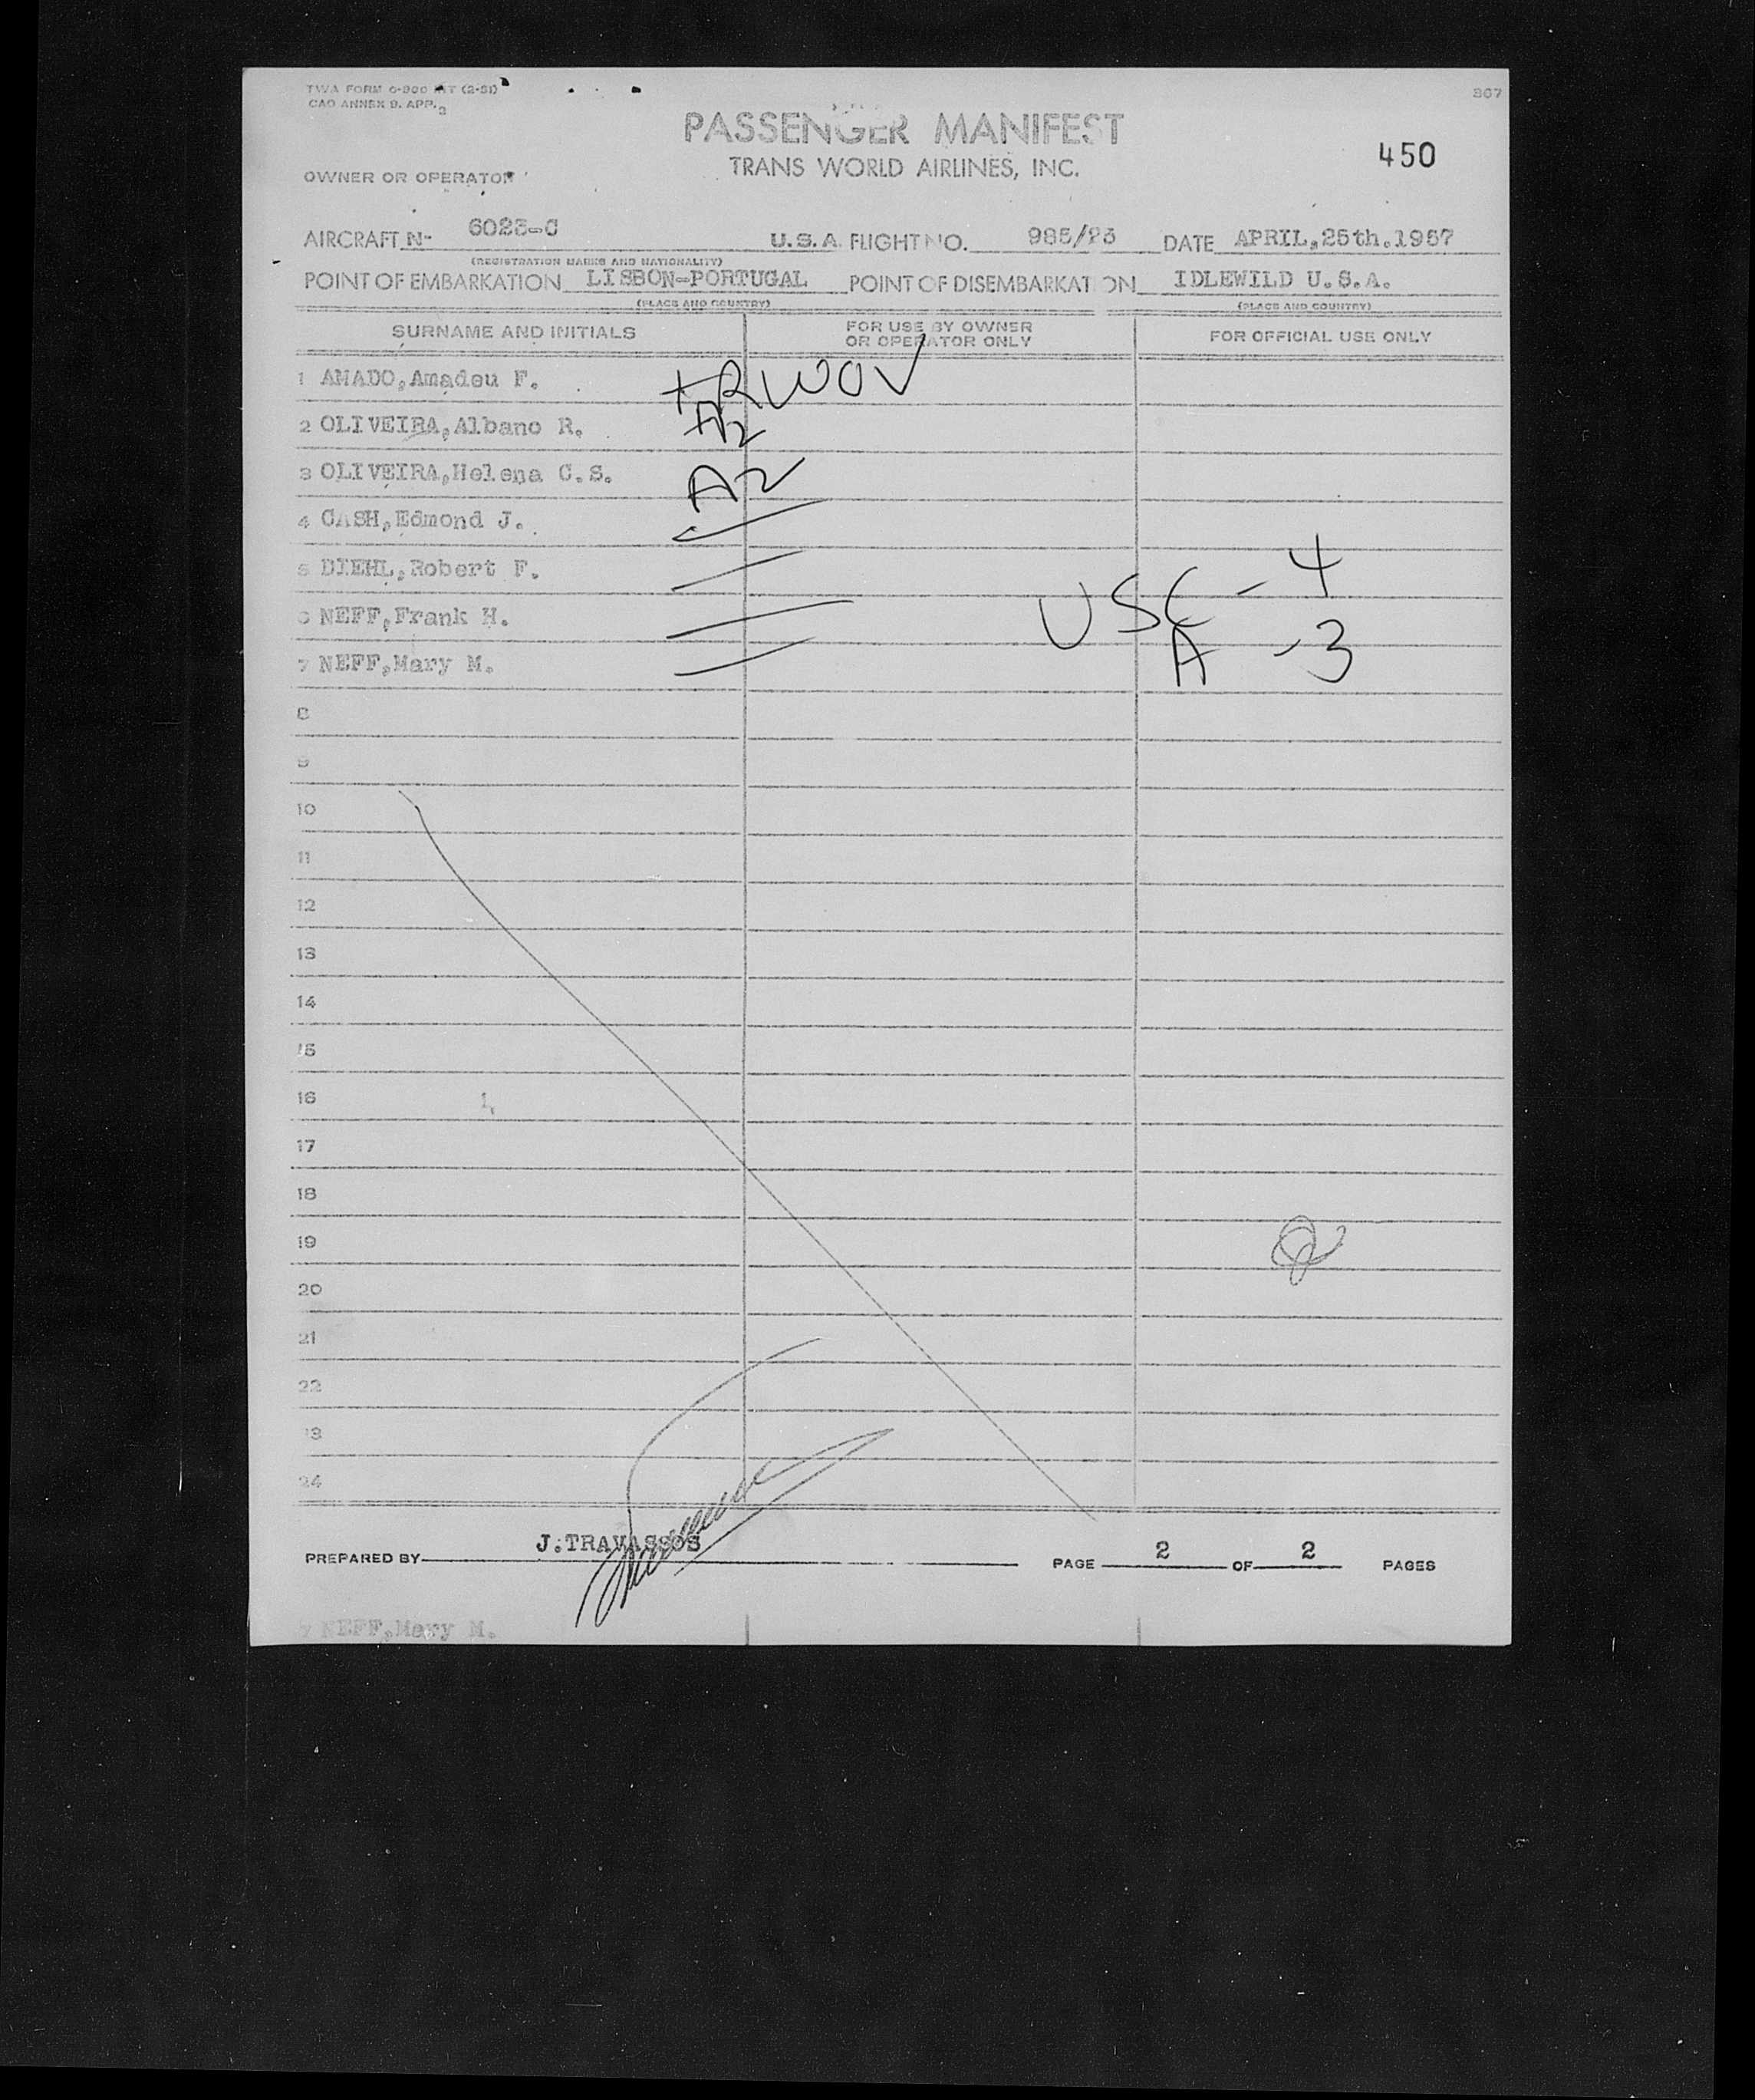 TWA FORM 0-900 INT (2-51)
CAO ANNEX 9. APP. 3
367
PASSENGER MANIFEST
TRANS WORLD AIRLINES, INC.
450
OWNER OR OPERATOR
AIRCRAFT N- 6023-C U.S.A. FLIGHT NO. 985/23 DATE APRIL,25th.1957
(REGISTRATION MARKS AND NATIONALITY)
POINT OF EMBARKATION LISBON-PORTUGAL POINT OF DISEMBARKATION IDLEWILD U.S.A.
(PLACE AND COUNTRY) (PLACE AND COUNTRY)
SURNAME AND INITIALS FOR USE BY OWNER OR OPERATOR ONLY FOR OFFICIAL USE ONLY
1 AMADO,Amadeu F.
2 OLIVEIRA,Albano R. A2
3 OLIVEIRA,Helena C.S. A2
4 CASH,Edmond J.
5 DIEHL,Robert F. USC - 4
6 NEFF,Frank H.
7 NEFF,Mary M. A - 3
8
9
10
11
12
13
14
15
16
17
18
19
20
21
22
23
24
PREPARED BY J.TRAVASSOS PAGE 2 OF 2 PAGES
7 NEFF,Mary M.